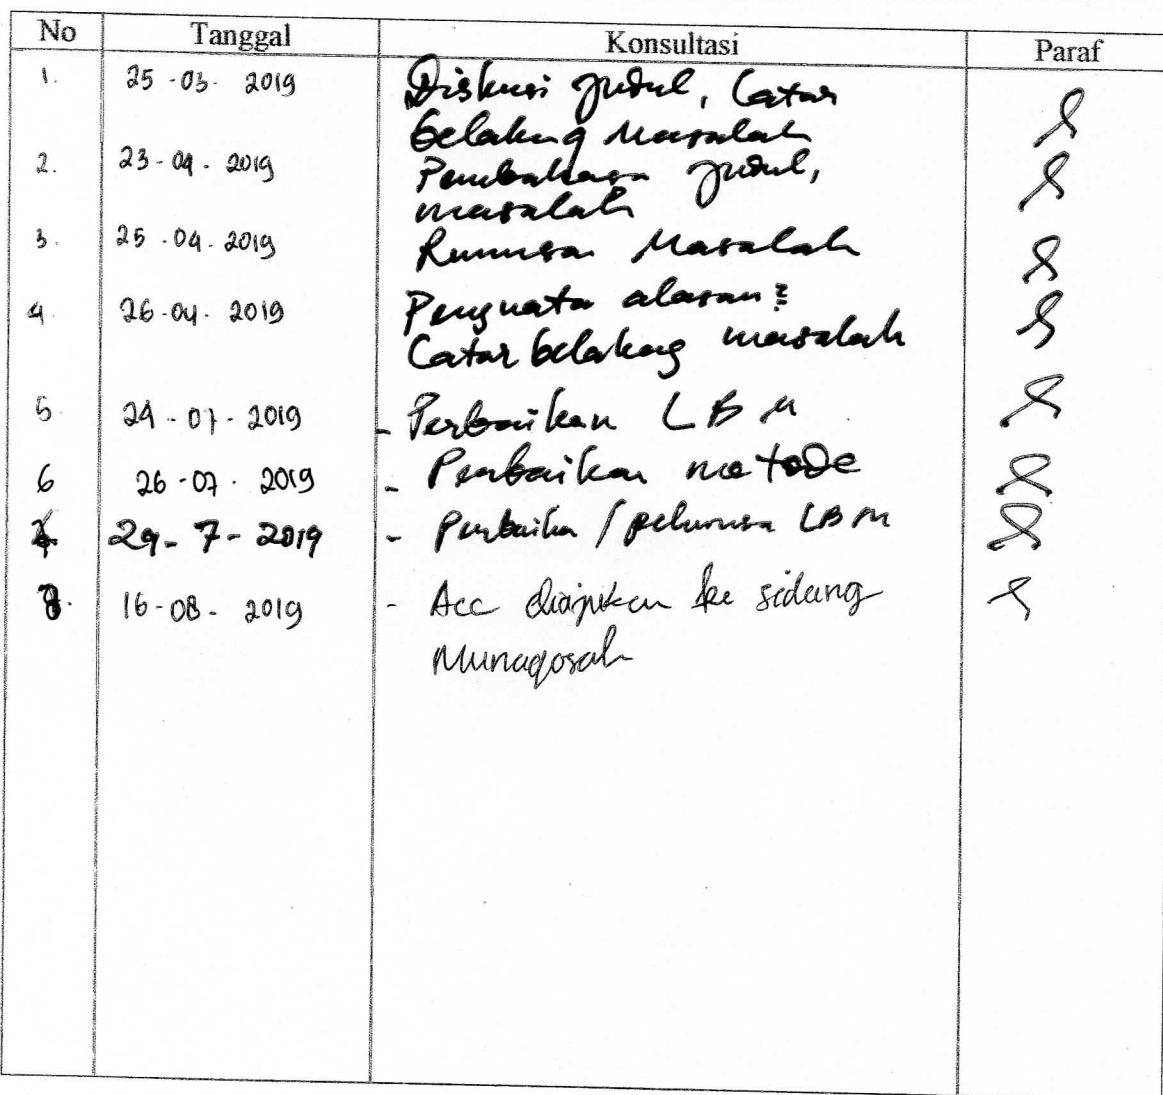 No Tanggal Konsultasi Paraf
1. 25-03-2019 Diskusi judul, Latar
belakang Masalah
2. 23-04-2019 Pembahasan judul,
masalah
3. 25-04-2019 Rumusan Masalah
4. 26-04-2019 Penguatan alasan2
Latar belakang masalah
5. 24-07-2019 - Perbaikan LBM
6 26-07-2019 - Perbaikan metode
29-7-2019 - Perbaikan / pelurusan LBM
8. 16-08-2019 - Acc diajukan ke sidang
Munaqosah